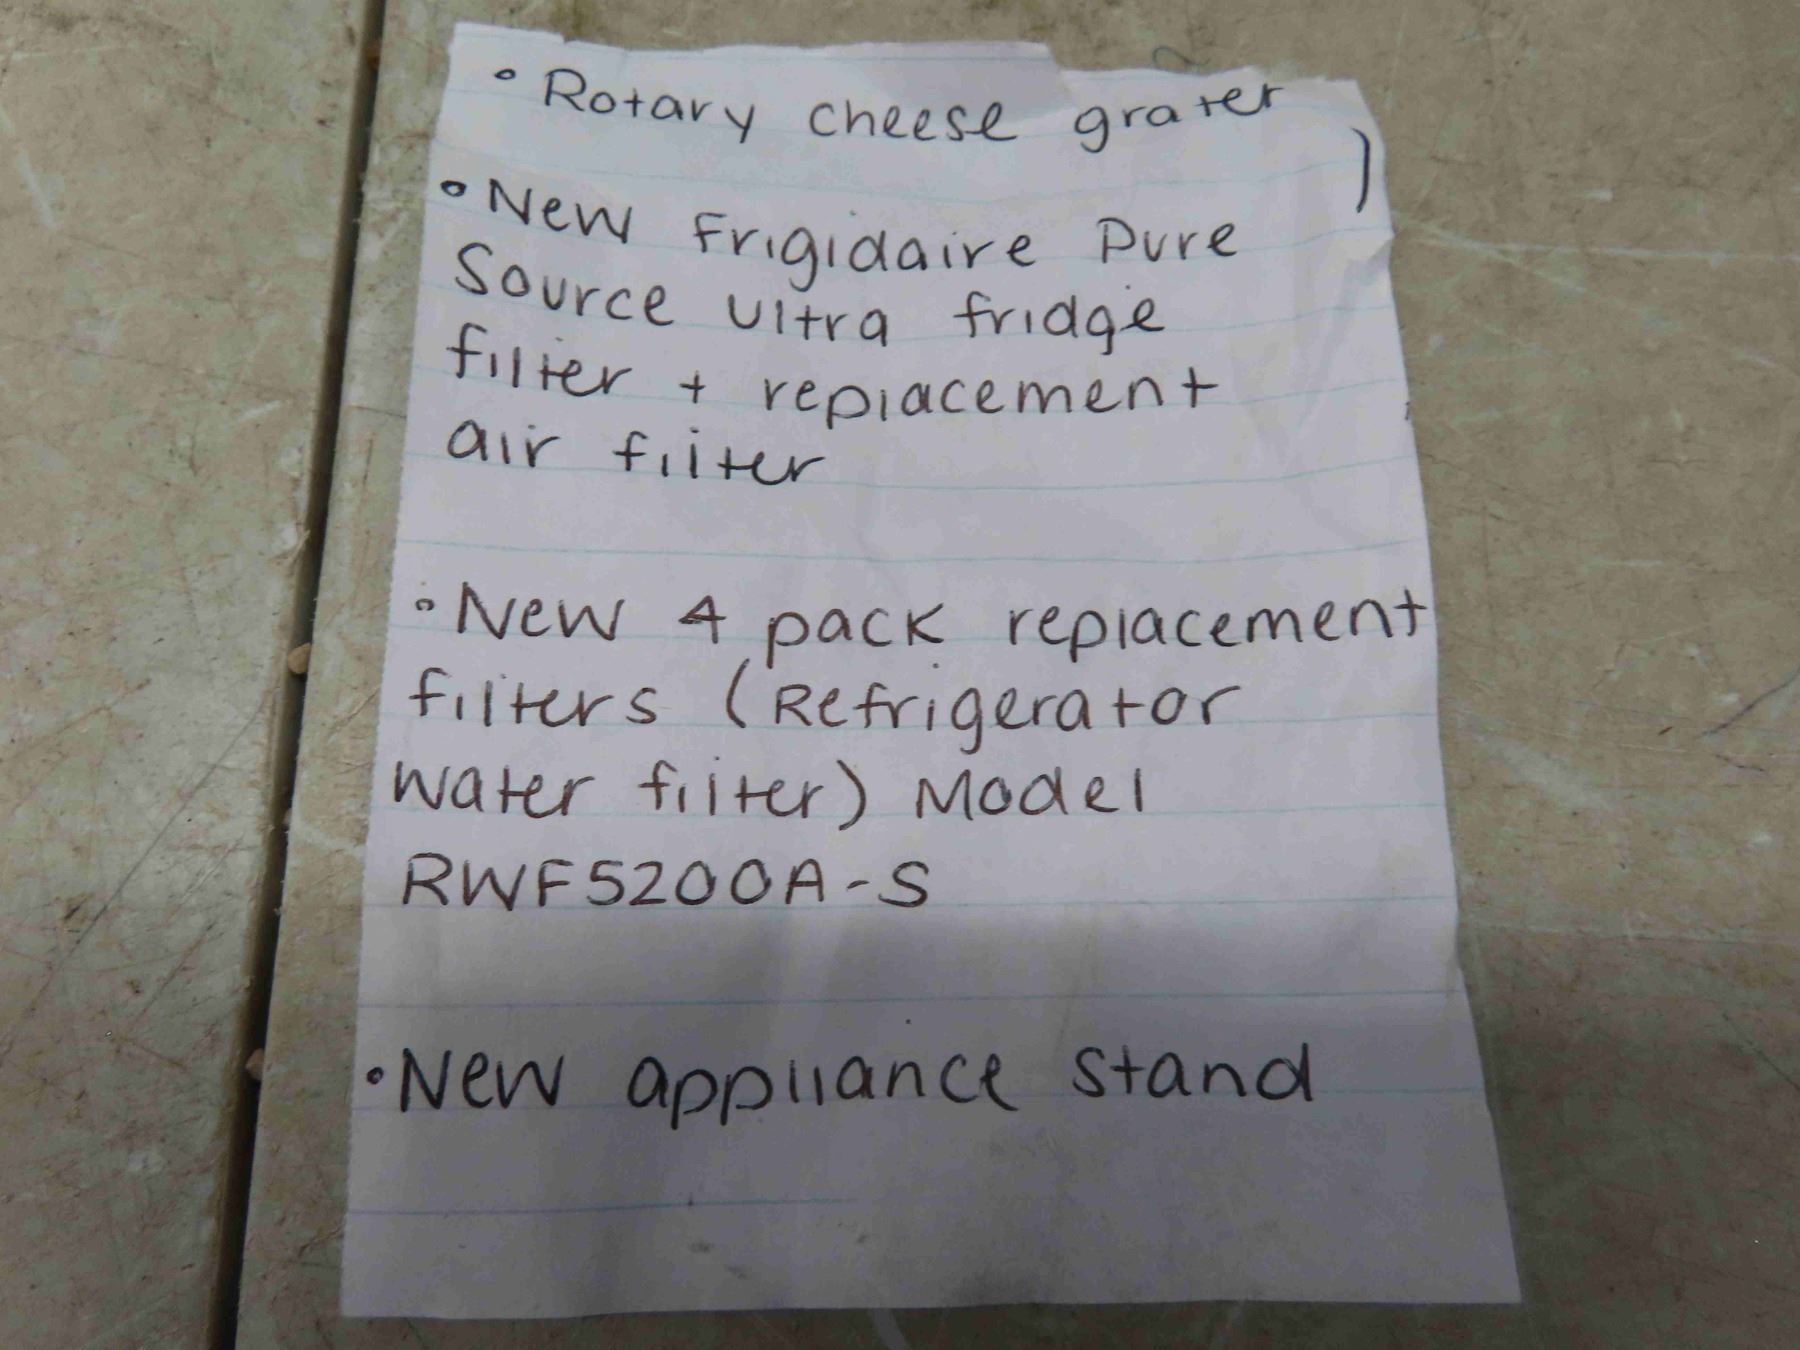 • Rotary cheese grater
)
• New Frigidaire Pure
Source Ultra fridge
filter + replacement
air filter
• New 4 pack replacement
filters (Refrigerator
water filter) Model
RWF5200A-S
• New appliance stand